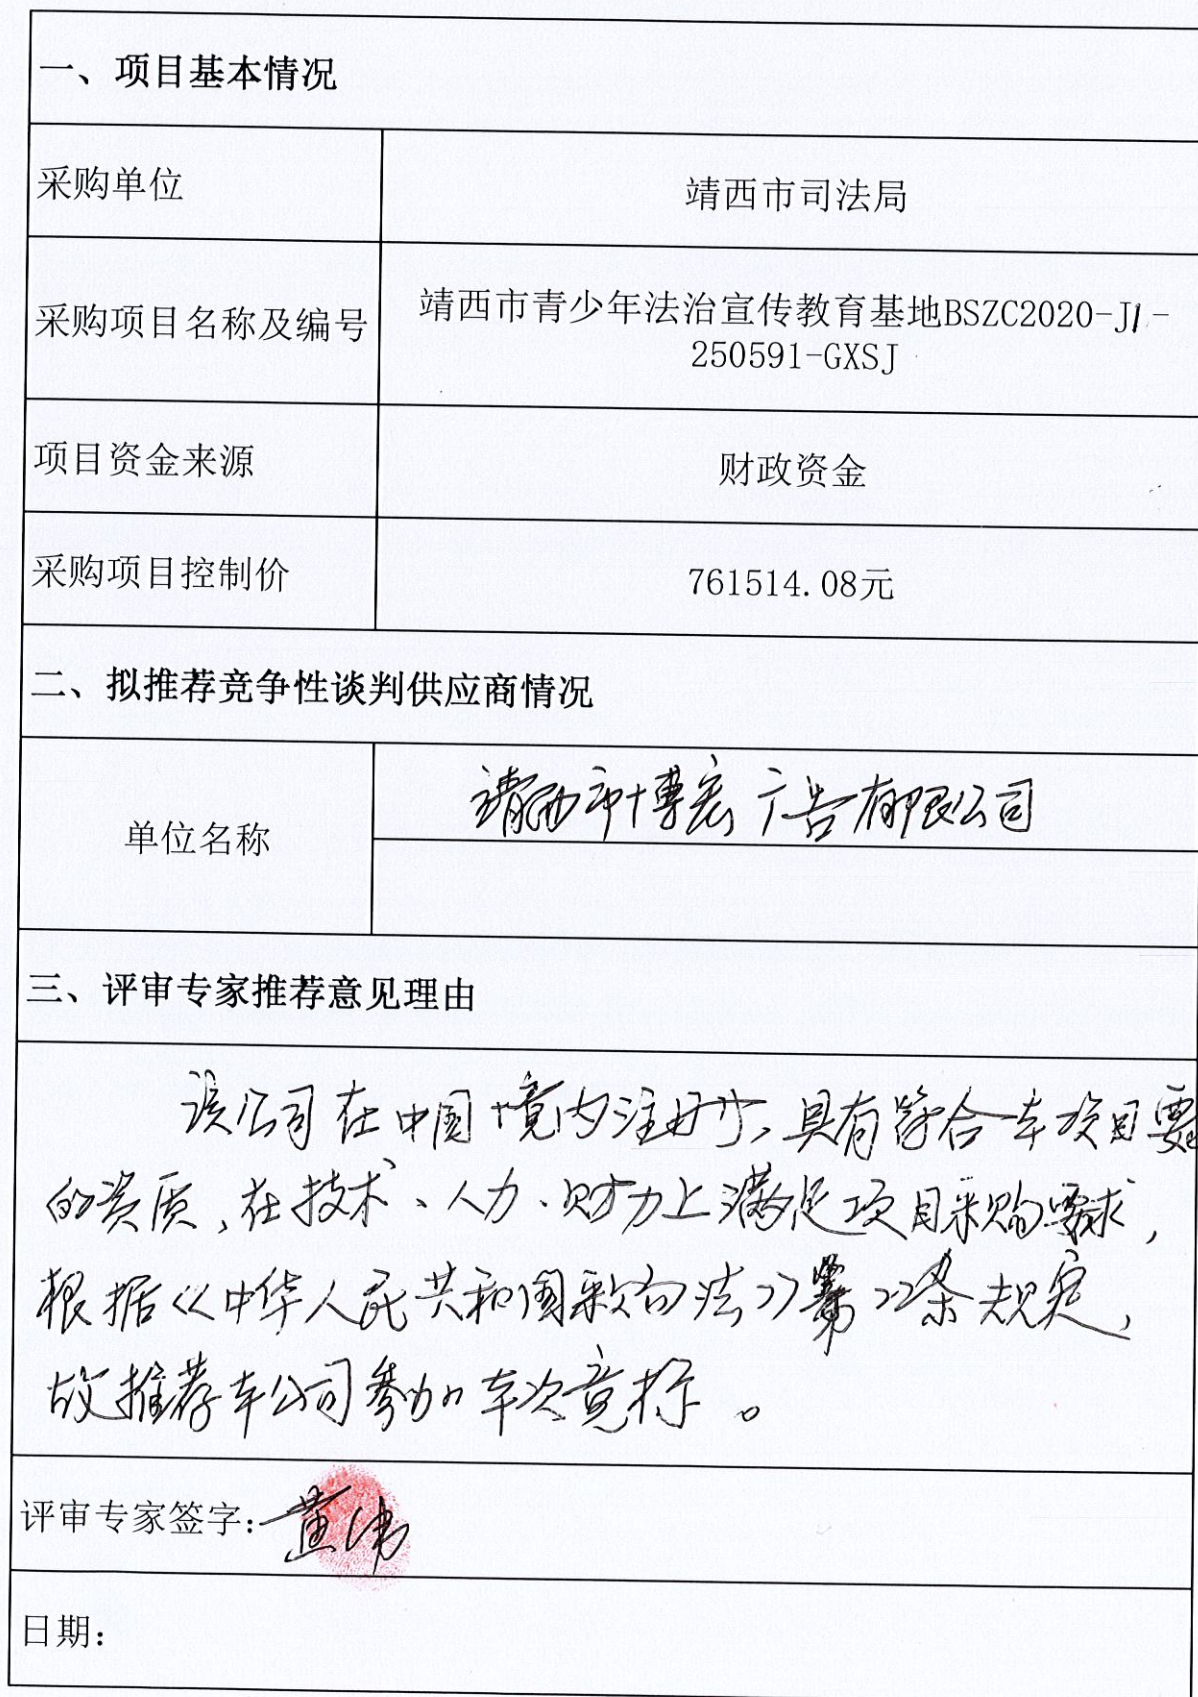 一、项目基本情况
采购单位
靖西市司法局
采购项目名称及编号
靖西市青少年法治宣传教育基地BSZC2020-J1-
250591-GXSJ
项目资金来源
财政资金
采购项目控制价
761514.08元
二、拟推荐竞争性谈判供应商情况
单位名称
靖西市博宏广告有限公司
三、评审专家推荐意见理由
该公司在中国境内注册,具有符合本项目要
的资质,在技术、人力、财力上满足项目采购要求,
根据《中华人民共和国采购法》第22条规定,
故推荐本公司参加本次竞标。
评审专家签字:黄伟
日期: